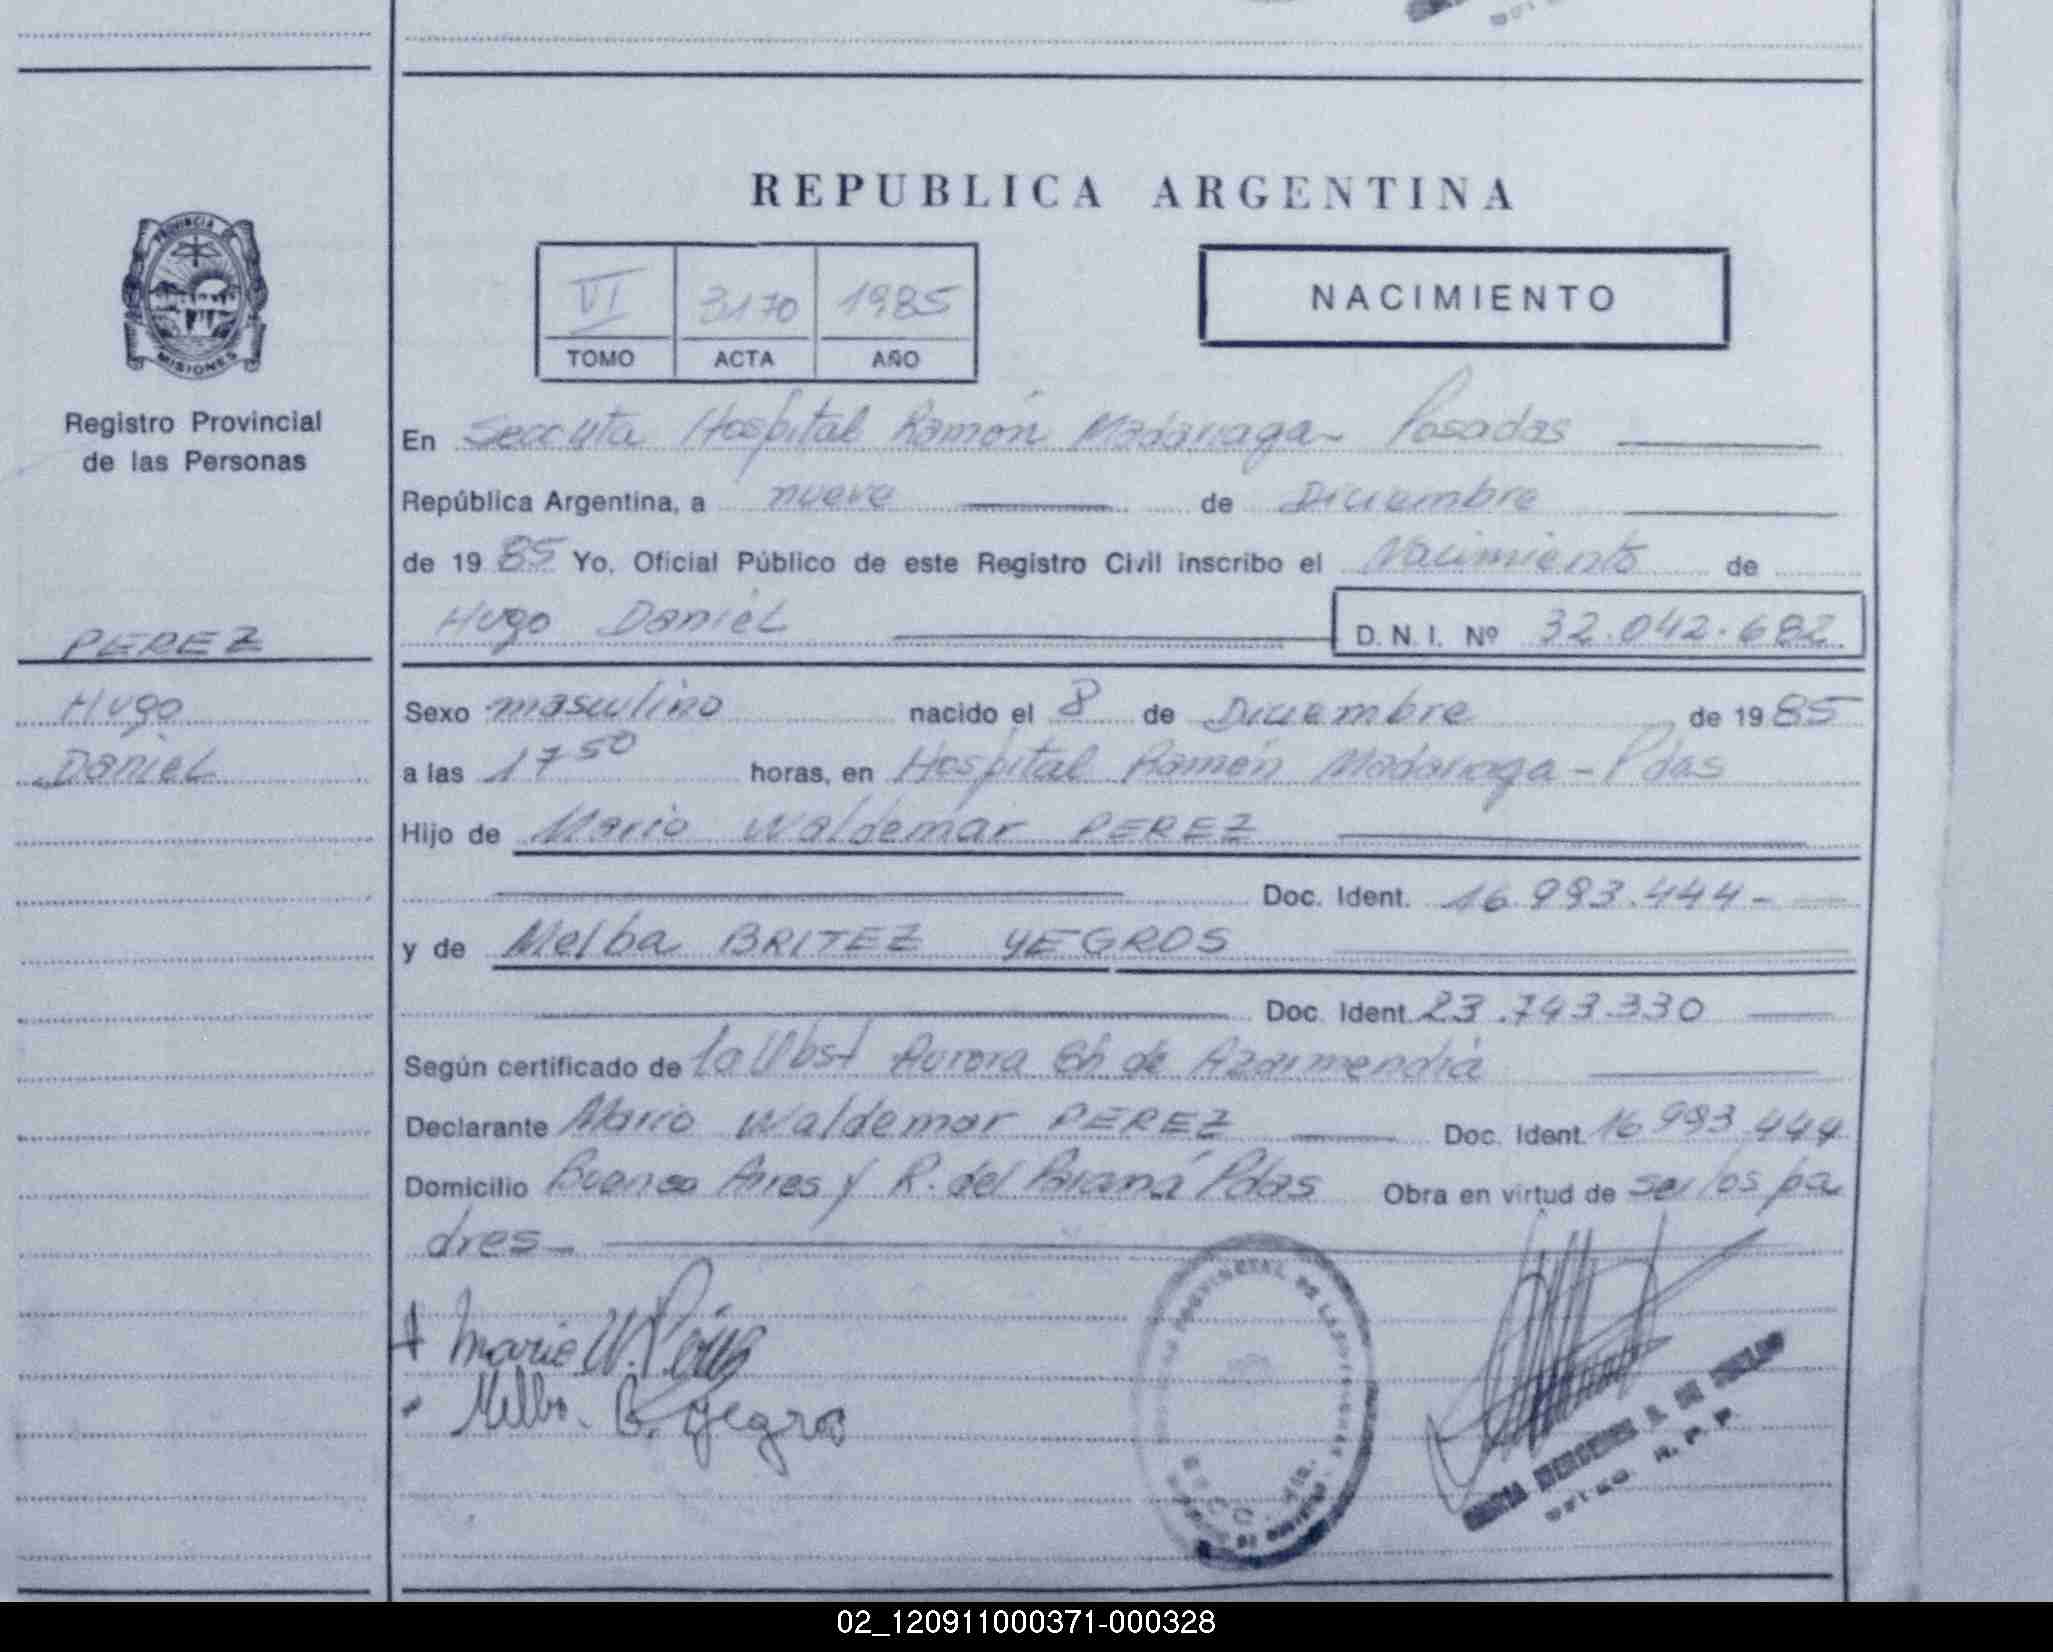 REPUBLICA ARGENTINA
PROVINCIA DE
MISIONES
Registro Provincial
de las Personas
VI 3170 1985
TOMO ACTA AÑO
NACIMIENTO
En Seccuta Hospital Ramón Madariaga - Posadas
República Argentina, a nueve de Diciembre
de 1985 Yo, Oficial Público de este Registro Civil inscribo el Nacimiento de
Hugo Daniel D.N.I. Nº 32.042.682
PEREZ
Hugo
Daniel
Sexo masculino nacido el 8 de Diciembre de 1985
a las 17 50 horas, en Hospital Ramón Madariaga - Pdas
Hijo de Mario Waldemar PEREZ
Doc. Ident. 16.993.444-
y de Melba BRITEZ YEGROS
Doc. Ident. 23.743.330
Según certificado de la Obst Aurora de Azarmendia
Declarante Mario Waldemar PEREZ Doc. Ident. 16 993 444
Domicilio Buenos Aires y R. del Paraná Pdas Obra en virtud de ser los pa
dres-
Mario W. Pérez
Melba B. Yegros
R. P. P.
02_120911000371-000328